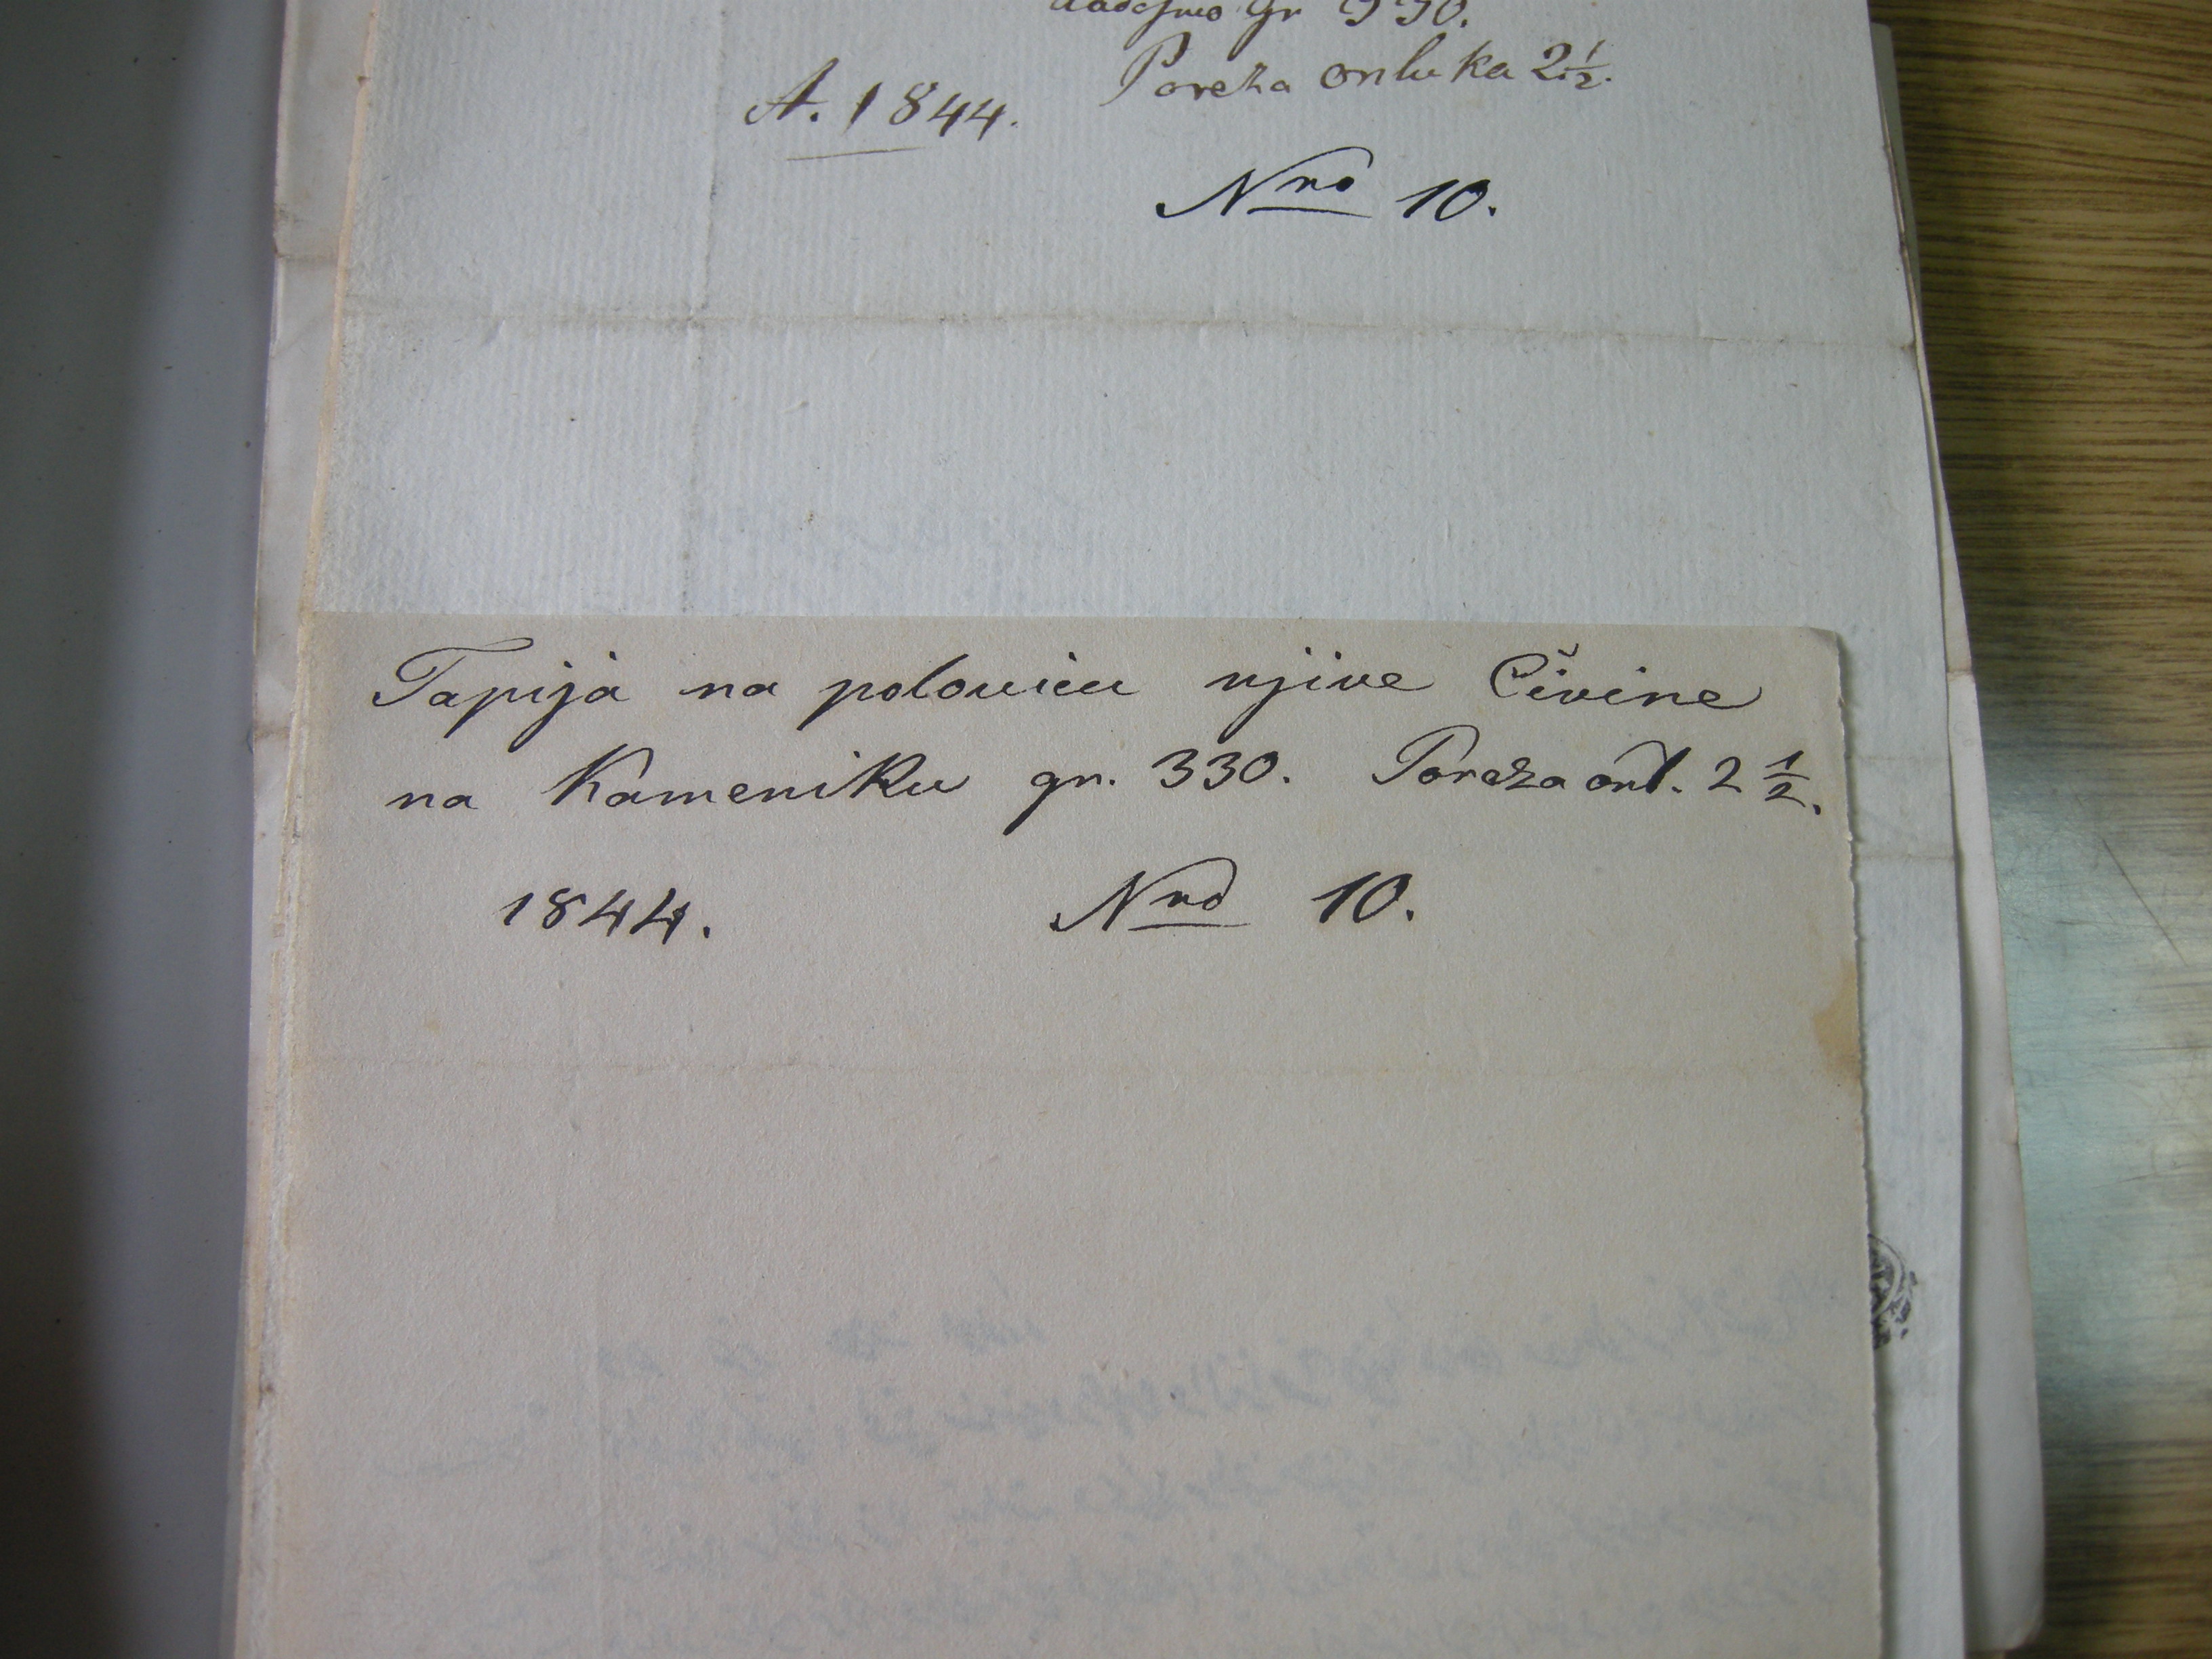 gr 330.
Poreza onluka 2 1/2.
A. 1844.
Nro 10.
Tapija na polovicu njive Čivine
na Kameniku gr. 330. Poreza onl. 2 1/2.
1844. Nro 10.